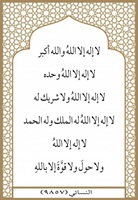 لا إله إلا اللهُ والله أكبر
لا إله إلا اللهُ وحده
لا إله إلا اللهُ ولا شريك له
لا إله إلا اللهُ له الملك وله الحمد
لا إله إلا اللهُ
ولا حول ولا قوَّةَ إلا باللهِ
النسائي (٩٨٥٧)